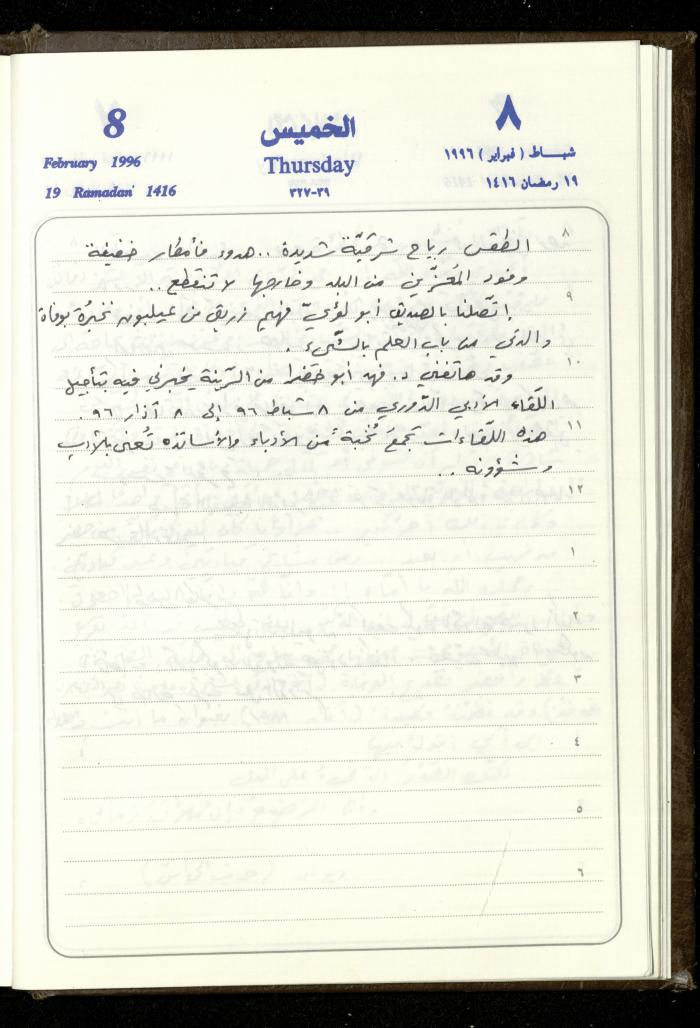 8
الخميس
٨
February 1996
Thursday
شباط ( فبراير ) ١٩٩٦
19 Ramadan 1416
٣٢٧-٣٩
١٩ رمضان ١٤١٦
٨
الطقس رياح شرقيّة شديدة .. هدوء فأمطار خفيفة
وفود المُعزّين من البلد وخارجها لا تنقطع ..
٩
إتّصلنا بالصديق أبو لؤيّ فهيم زريق من عيلبون نخبرُهُ بوفاة
والدتي من باب العلم بالشّيء .
١٠
وقد هاتفني د. فهد أبو خضرا من الرّينة يخبرني فيه بتأجيل
اللّقاء الأدبي الدّوري من ٨ شباط ٩٦ إلى ٨ آذار ٩٦ .
١١
هذه اللّقاءات تجمعُ نُخبة من الأدباء والأساتذه تُعنى بالأدب
وشؤونه ..
١٢
١
٢
٣
٤
٥
٦